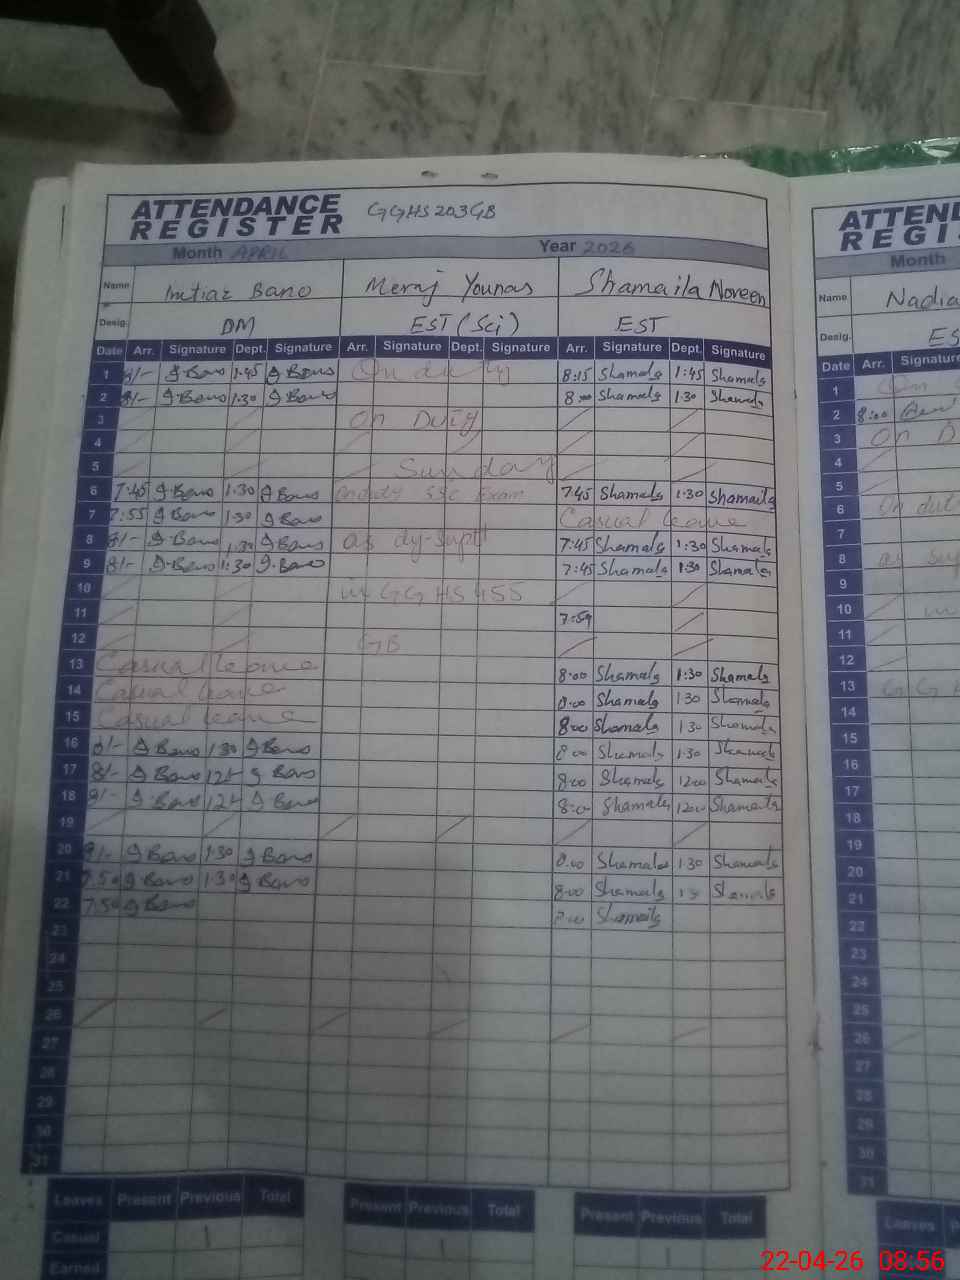 ATTENDANCE REGISTER GGHS203GB
Month APRIL Year 2026
Name Imtiaz Bano Meraj Younas Shamaila Noreen
Desig. DM EST (Sci) EST
Date Arr. Signature Dept. Signature Arr. Signature Dept. Signature Arr. Signature Dept. Signature
1 8/- I Bano 1:45 I Bano On duty 8:15 Shamala 1:45 Shamala
2 8/- I Bano 1:30 I Bano 8:00 Shamala 1:30 Shamala
3 On Duty
4
5 Sunday
6 7:45 I Bano 1:30 I Bano On duty SSC Exam 7:45 Shamala 1:30 Shamaila
7 7:55 I Bano 1:30 I Bano Casual leave
8 8/- I Bano 1:30 I Bano as dy-supt 7:45 Shamala 1:30 Shamala
9 8/- I Bano 1:30 I Bano 7:45 Shamala 1:30 Shamala
10 in GGHS 455
11 7:59
12 GB
13 Casual leave 8:00 Shamala 1:30 Shamala
14 Casual leave 8:00 Shamala 1:30 Shamala
15 Casual leave 8:00 Shamala 1:30 Shamala
16 8/- I Bano 1:30 I Bano 8:00 Shamala 1:30 Shamala
17 8/- I Bano 12/- I Bano 8:00 Shamala 12:00 Shamala
18 8/- I Bano 12/- I Bano 8:00 Shamala 12:00 Shamaila
19
20 8/- I Bano 1:30 I Bano 8:00 Shamala 1:30 Shamala
21 7:50 I Bano 1:30 I Bano 8:00 Shamala Shamala
22 7:50 I Bano 8:00 Shamaila
23
24
25
26
27
28
29
30
31
Leaves Present Previous Total Present Previous Total Present Previous Total
Casual 1 1 1
Earned
ATTEND
REGI
Month
Name Nadia
Desig. ES
Date Arr. Signature
1 On
2 8:00
3 On D
4
5
6 On dut
7
8 as sup
9
10 in
11
12
13 GG H
14
15
16
17
18
19
20
21
22
23
24
25
26
27
28
29
30
31
Leaves
22-04-26 08:56